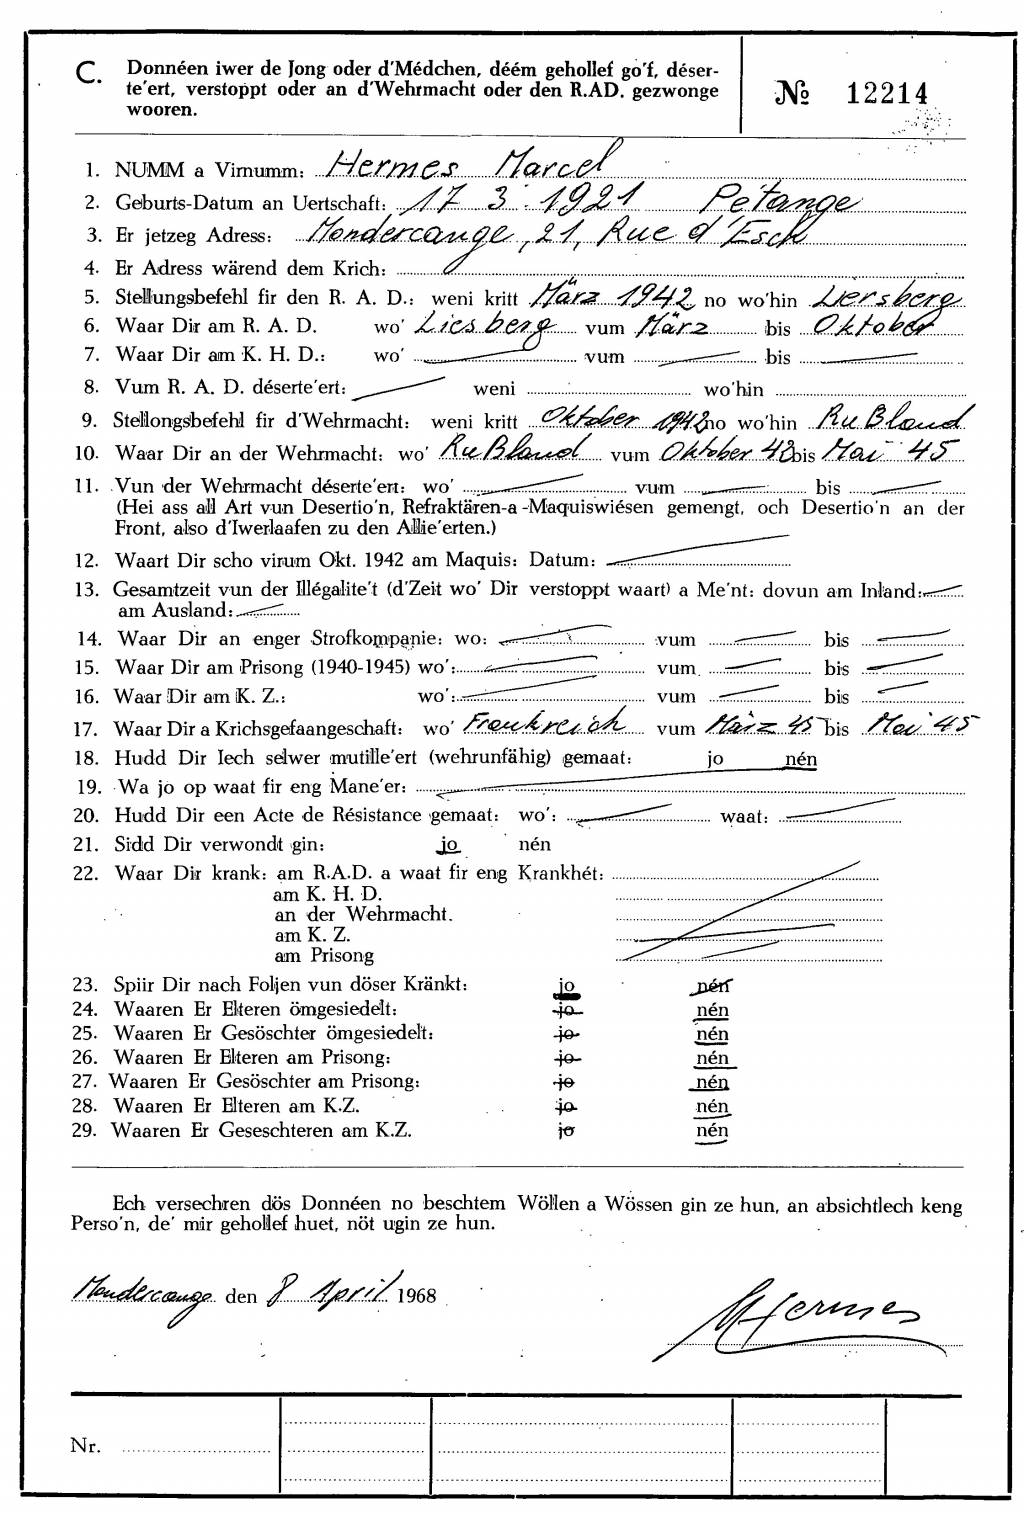 C. Donnéen iwer de Jong oder d'Médchen, déém gehollef go'f, déser-
te'ert, verstoppt oder an d'Wehrmacht oder den R.AD. gezwonge
wooren.
№ 12214
1. NUMM a Virnumm: Hermes Marcel
2. Geburts-Datum an Uertschaft: 17 3 1921 Pétange
3. Er jetzeg Adress: Mondercange, 21, Rue d'Esch
4. Er Adress wärend dem Krich:
5. Stellungsbefehl fir den R. A. D.: weni kritt März 1942 no wo'hin Liersberg
6. Waar Dir am R. A. D. wo' Liesberg vum März bis Oktober
7. Waar Dir am K. H. D.: wo' vum bis
8. Vum R. A. D. déserte'ert: weni wo'hin
9. Stellongsbefehl fir d'Wehrmacht: weni kritt Oktober 1942 no wo'hin Rußland
10. Waar Dir an der Wehrmacht: wo' Rußland vum Oktober 42 bis Mai 45
11. Vun der Wehrmacht déserte'ert: wo' vum bis
(Hei ass all Art vun Desertio'n, Refraktären-a-Maquiswiésen gemengt, och Desertio'n an der
Front, also d'Iwerlaafen zu den Allie'erten.)
12. Waart Dir scho virum Okt. 1942 am Maquis: Datum:
13. Gesamtzeit vun der Illégalite't (d'Zeit wo' Dir verstoppt waart) a Me'nt: dovun am Inland:
am Ausland:
14. Waar Dir an enger Strofkompanie: wo: vum bis
15. Waar Dir am Prisong (1940-1945) wo': vum bis
16. Waar Dir am K. Z.: wo': vum bis
17. Waar Dir a Krichsgefaangeschaft: wo' Frankreich vum März 45 bis Mai 45
18. Hudd Dir Iech selwer mutille'ert (wehrunfähig) gemaat: jo nén
19. Wa jo op waat fir eng Mane'er:
20. Hudd Dir een Acte de Résistance gemaat: wo': waat:
21. Sidd Dir verwondt gin: jo nén
22. Waar Dir krank: am R.A.D. a waat fir eng Krankhét:
am K. H. D.
an der Wehrmacht.
am K. Z.
am Prisong
23. Spiir Dir nach Foljen vun döser Kränkt: jo nén
24. Waaren Er Elteren ömgesiedelt: jo nén
25. Waaren Er Gesöschter ömgesiedelt: jo nén
26. Waaren Er Elteren am Prisong: jo nén
27. Waaren Er Gesöschter am Prisong: jo nén
28. Waaren Er Elteren am K.Z. jo nén
29. Waaren Er Geseschteren am K.Z. jo nén
Ech versechren dös Donnéen no beschtem Wöllen a Wössen gin ze hun, an absichtlech keng
Perso'n, de' mir gehollef huet, nöt ugin ze hun.
Mondercange den 8 April 1968
M Hermes
Nr.